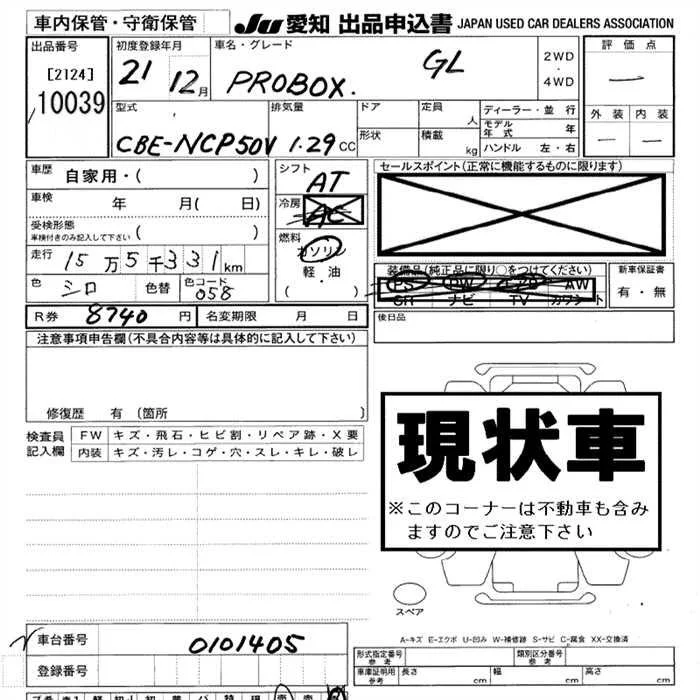 車内保管・守衛保管
JU 愛知 出品申込書 JAPAN USED CAR DEALERS ASSOCIATION
出品番号
[2124]
10039
初度登録年月
21 12月
車名・グレード
PROBOX. GL
2WD
・
4WD
評価点
—
外装 内装
— —
型式
CBE-NCP50V
排気量
1.29 CC
ドア
形状
定員 人
積載 kg
ディーラー・並行
モデル年式 年
ハンドル 左・右
車歴 自家用・( )
車検 年 月( 日)
受検形態
車検付きのみ記入して下さい ( )
走行 15万5千331km
色 シロ 色替 色コード 058
シフト
AT
冷房
AC
燃料
ガソリン
軽・油
( )
セールスポイント(正常に機能するものに限ります)
装備品(純正品に限り○をつけてください)
PS PW エアB AW
SR ナビ TV カワシート
新車保証書
有・無
R券 8740円 名変期限 月 日
後日品
注意事項申告欄(不具合内容等は具体的に記入して下さい)
修復歴 有 〔箇所 〕
検査員
記入欄
FW キズ・飛石・ヒビ割・リペア跡・X要
内装 キズ・汚レ・コゲ・穴・スレ・キレ・破レ
現状車
※このコーナーは不動車も含み
ますのでご注意下さい
スペア
A-キズ E-エクボ U-凹み W-補修跡 S-サビ C-腐食 XX-交換済
車台番号 0101405
登録番号
形式指定番号
参考
類別区分番号
参考
車庫証明用
参考
長さ cm 幅 cm 高さ cm